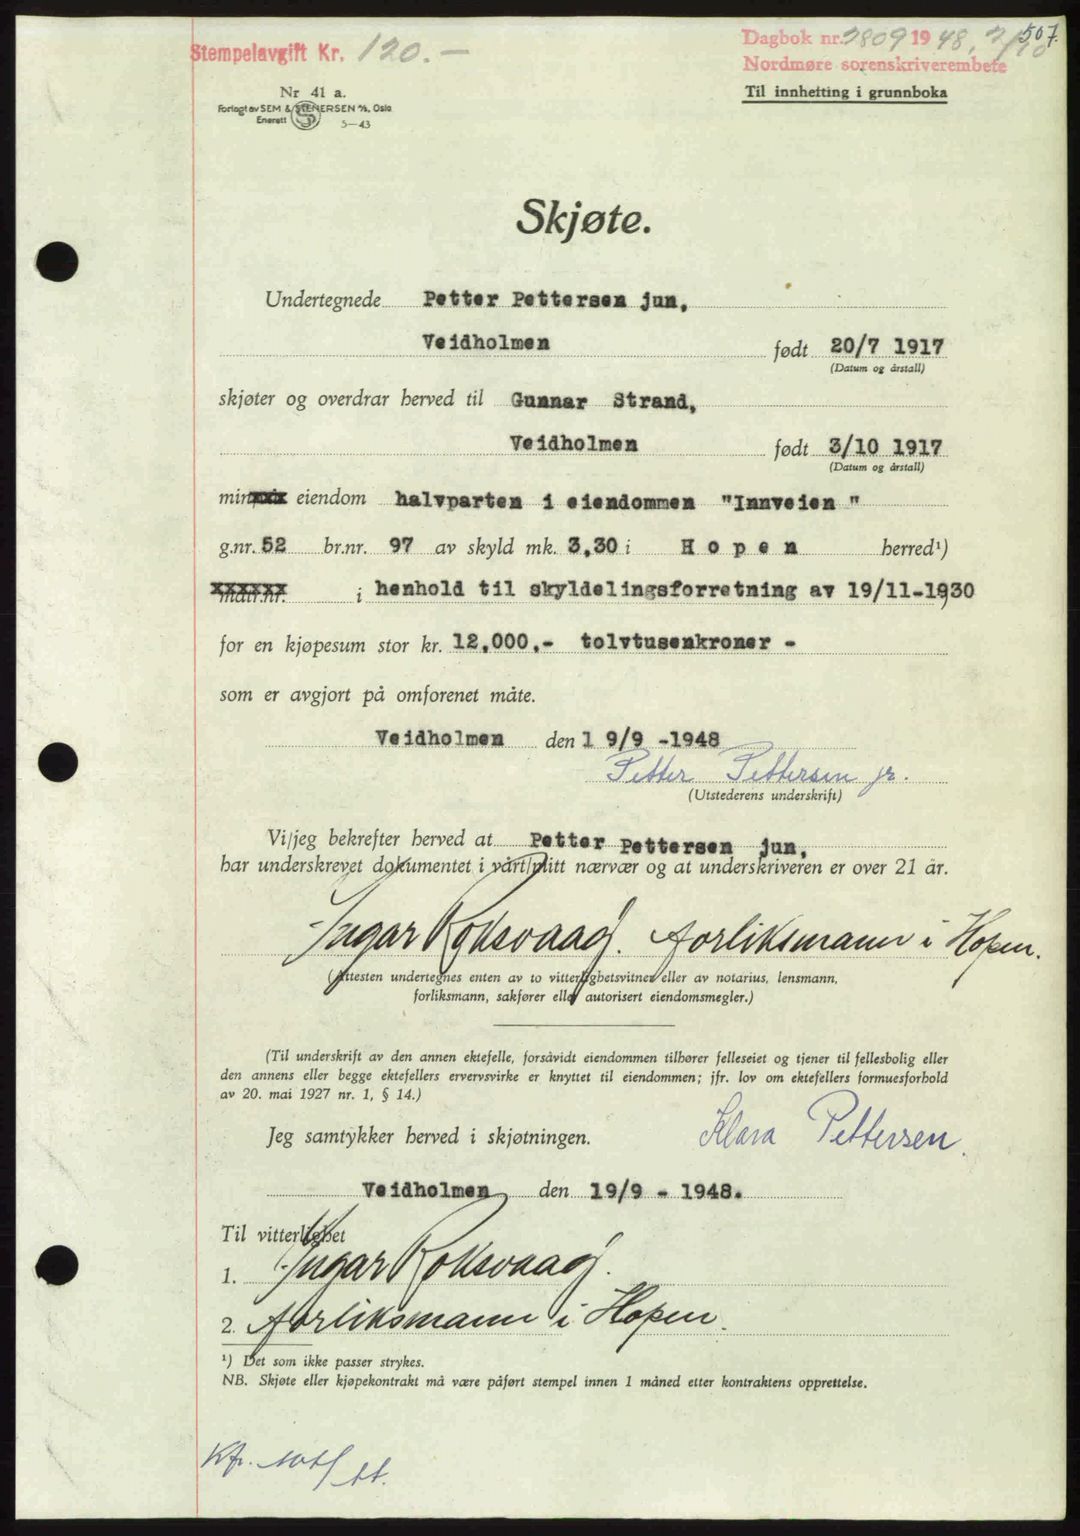 507.
Stempelavgift Kr. 120.-
Dagbok nr. 2809 1948, 2/10
Nordmøre sorenskriverembete
Til innhefting i grunnboka
Nr 41 a.
Forlagt av SEM & STENERSEN A/S, Oslo
Enerett 5-43
Skjøte.
Undertegnede Petter Pettersen jun,
Veidholmen født 20/7 1917
(Datum og årstall)
skjøter og overdrar herved til Gunnar Strand,
Veidholmen født 3/10 1917
(Datum og årstall)
min/xxx eiendom halvparten i eiendommen "Innveien "
g.nr. 52 br.nr. 97 av skyld mk. 3,30 i Hopen herred¹)
matr.nr. i henhold til skyldelingsforretning av 19/11-1930
for en kjøpesum stor kr. 12,000,- tolvtusenkroner -
som er avgjort på omforenet måte.
Veidholmen den 1 9/9 -1948
Petter Pettersen jr.
(Utstederens underskrift)
Vi/jeg bekrefter herved at Petter Pettersen jun,
har underskrevet dokumentet i vårt/mitt nærvær og at underskriveren er over 21 år.
Ingar Roksvaag. forliksmann i Hopen.
(Attesten undertegnes enten av to vitterlighetsvitner eller av notarius, lensmann,
forliksmann, sakfører eller autorisert eiendomsmegler.)
(Til underskrift av den annen ektefelle, forsåvidt eiendommen tilhører felleseiet og tjener til fellesbolig eller
den annens eller begge ektefellers ervervsvirke er knyttet til eiendommen; jfr. lov om ektefellers formuesforhold
av 20. mai 1927 nr. 1, § 14.)
Jeg samtykker herved i skjøtningen. Klara Pettersen.
Veidholmen den 19/9 - 1948.
Til vitterlighet
1. Ingar Roksvaag.
2. forliksmann i Hopen.
¹) Det som ikke passer strykes.
NB. Skjøte eller kjøpekontrakt må være påført stempel innen 1 måned etter kontraktens opprettelse.